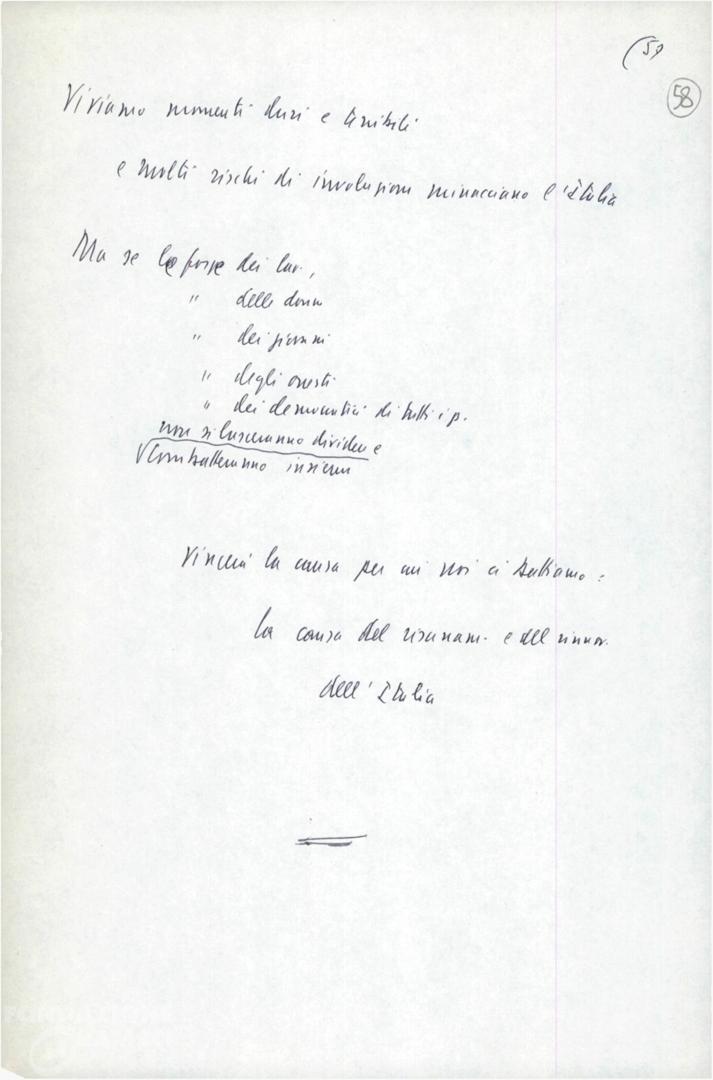 (59
58
Viviamo momenti duri e terribili
e molti rischi di involuzione minacciano l'Italia
Ma se le forze dei lav.,
" delle donne
" dei giovani
" degli onesti
" dei democratici di tutti i p.
non si lasceranno dividere
combatteranno insieme
Vincerà la causa per cui noi ci battiamo:
la causa del risanam. e dell rinnov.
dell'Italia